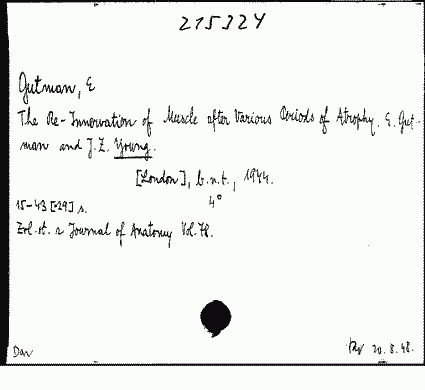 215324
Gutman, E
The Re-Innervation of Muscle after Various Periods of Atrophy. E. Gut-
man and J. Z. Young.
[London], b.n.t., 1944.
4°
15-43 [29] s.
Zvl. ot. z Journal of Anatomy Vol. 78.
Dar
20.8.48.